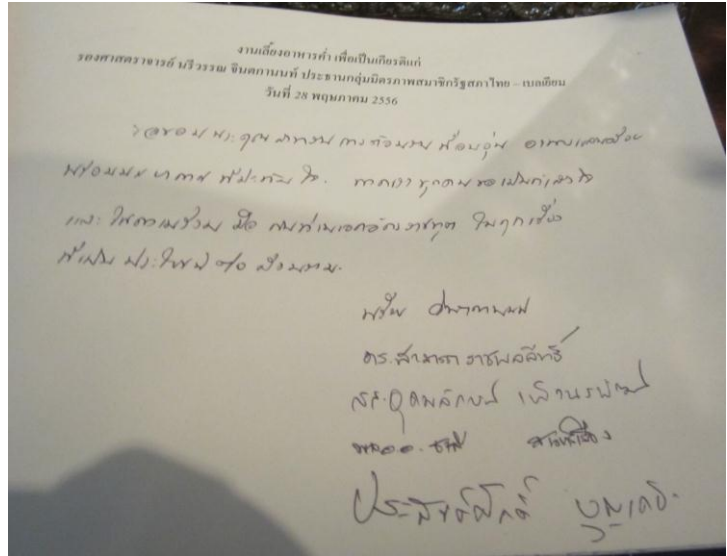 งานเลี้ยงอาหารค่ำ เพื่อเป็นเกียรติแก่
รองศาสตราจารย์ นริวรรณ จินตกานนท์ ประธานกลุ่มมิตรภาพสมาชิกรัฐสภาไทย – เบลเยียม
วันที่ 28 พฤษภาคม 2556
ขอขอบพระคุณ การต้อนรับ อบอุ่น อาหารแสนอร่อย
พร้อมบรรยากาศ ที่ประทับใจ. พวกเราทุกคนขอเป็นกำลังใจ
และ ให้ความร่วมมือ ท่านเอกอัครราชทูต ในทุกเรื่อง
ที่เป็น ประโยชน์ ต่อ
จินตกานนท์
ดร. ราชพลสิทธิ์
พล.อ.อ.
ประสิทธิ์ศักดิ์